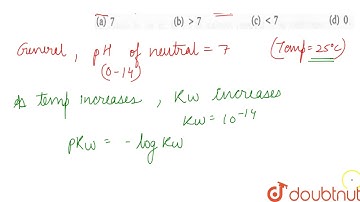 (a) 7 (b) > 7 (c) < 7 (d) 0
General, pH of neutral = 7 (Temp = 25°C)
(0-14)
As temp increases, Kw increases
Kw = 10⁻¹⁴
pKw = - log Kw
doubtnut